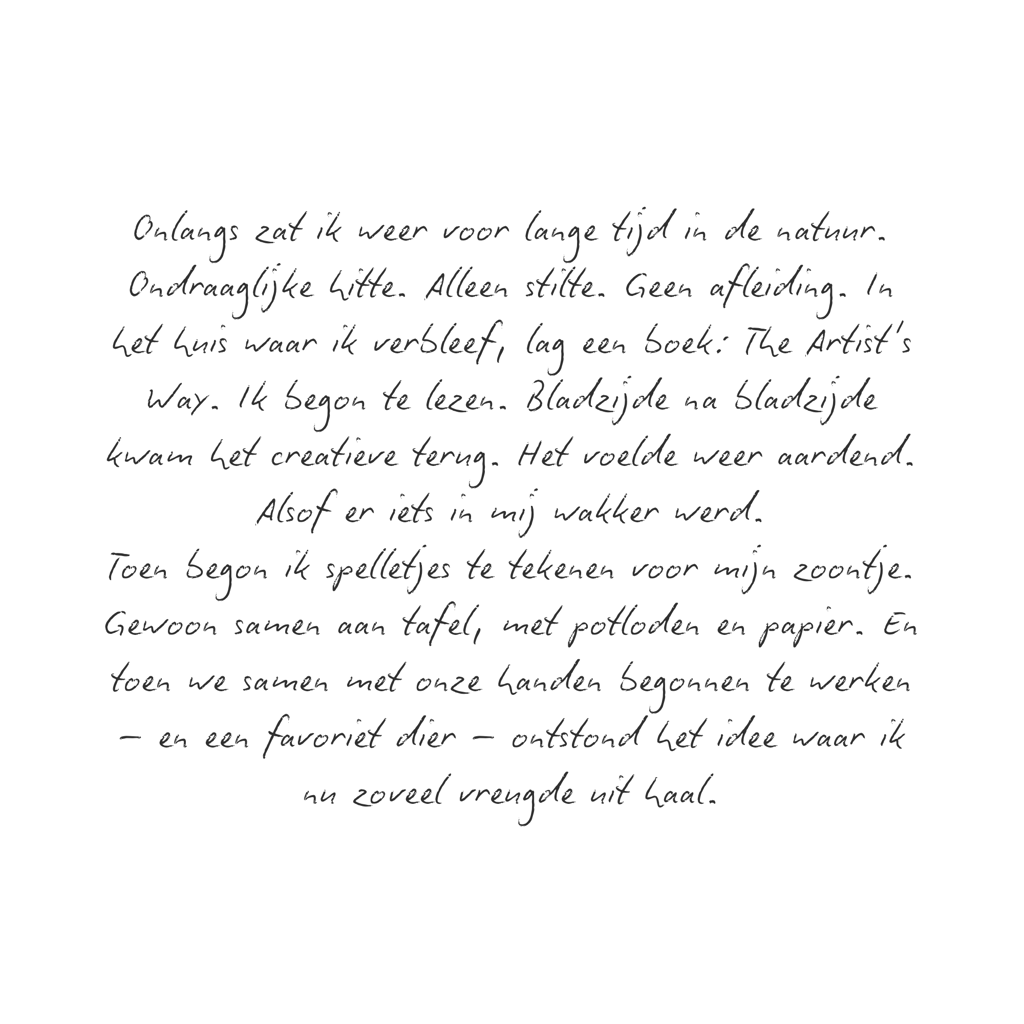 Onlangs zat ik weer voor lange tijd in de natuur.
Ondraaglijke hitte. Alleen stilte. Geen afleiding. In
het huis waar ik verbleef, lag een boek: The Artist's
Way. Ik begon te lezen. Bladzijde na bladzijde
kwam het creatieve terug. Het voelde weer aardend.
Alsof er iets in mij wakker werd.
Toen begon ik spelletjes te tekenen voor mijn zoontje.
Gewoon samen aan tafel, met potloden en papier. En
toen we samen met onze handen begonnen te werken
– en een favoriet dier – ontstond het idee waar ik
nu zoveel vreugde uit haal.